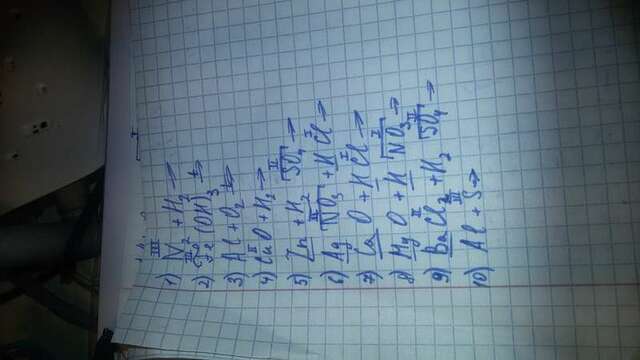 1) N₂ + H₂ →
2) Fe(OH)₃ →
3) Al + O₂ →
4) CuO + H₂ →
5) Zn + H₂SO₄ →
6) AgNO₃ + HCl →
7) CaO + HCl →
8) MgO + HNO₃ →
9) BaCl₂ + H₂SO₄ →
10) Al + S →